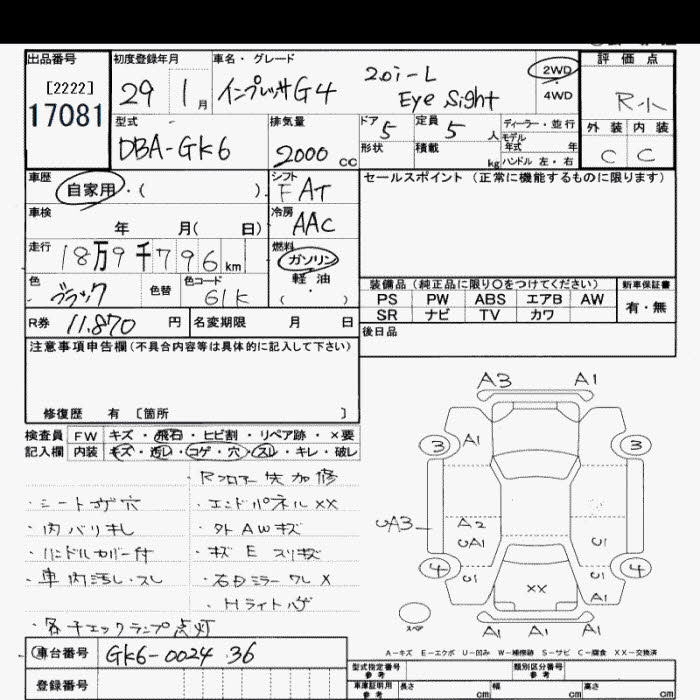 出品番号
[2222]
17081
初度登録年月
29 1 月
車名・グレード
インプレッサG4 2.0i-L
Eye Sight
2WD
4WD
評価点
R-小
外装 内装
C C
型式
DBA-GK6
排気量
2000 cc
ドア 5
定員 5 人
形状
積載 kg
ディーラー・並行
モデル年式 年
ハンドル 左・右
車歴
自家用・( )
シフト
FAT
セールスポイント (正常に機能するものに限ります)
車検
年 月( 日)
冷房
AAC
走行
18万9千796km
燃料
ガソリン
軽油
( )
色
ブラック
色替
色コード
61K
装備品 (純正品に限り○をつけてください)
PS PW ABS エアB AW
SR ナビ TV カワ
新車保証書
有・無
R券 11,870 円
名変期限 月 日
後日品
注意事項申告欄(不具合内容等は具体的に記入して下さい)
修復歴 有 〔箇所 〕
検査員 FW キズ・飛石・ヒビ割・リペア跡・×要
記入欄 内装 キズ・汚レ・コゲ・穴・スレ・キレ・破レ
・Rフロアー 先加修
・シートコゲ穴
・エンドパネルXX
・内バリキレ
・外AWキズ
・ハンドルカバー付
・キズ E スリキズ
・車内汚レ・スレ
・右ドミラーワレ X
・Hライトハゲ
・各チェックランプ点灯
A3 A1
3 A1 3
UA3 A2
UA1 U1
4 U1 4
XX A1
スペア
A1 A1 A1
A-キズ E-エクボ U-凹み W-補修跡 S-サビ C-腐食 XX-交換済
車台番号 GK6-002436
登録番号
型式指定番号 参考
類別区分番号 参考
車庫証明用 参考 長さ cm 幅 cm 高さ cm